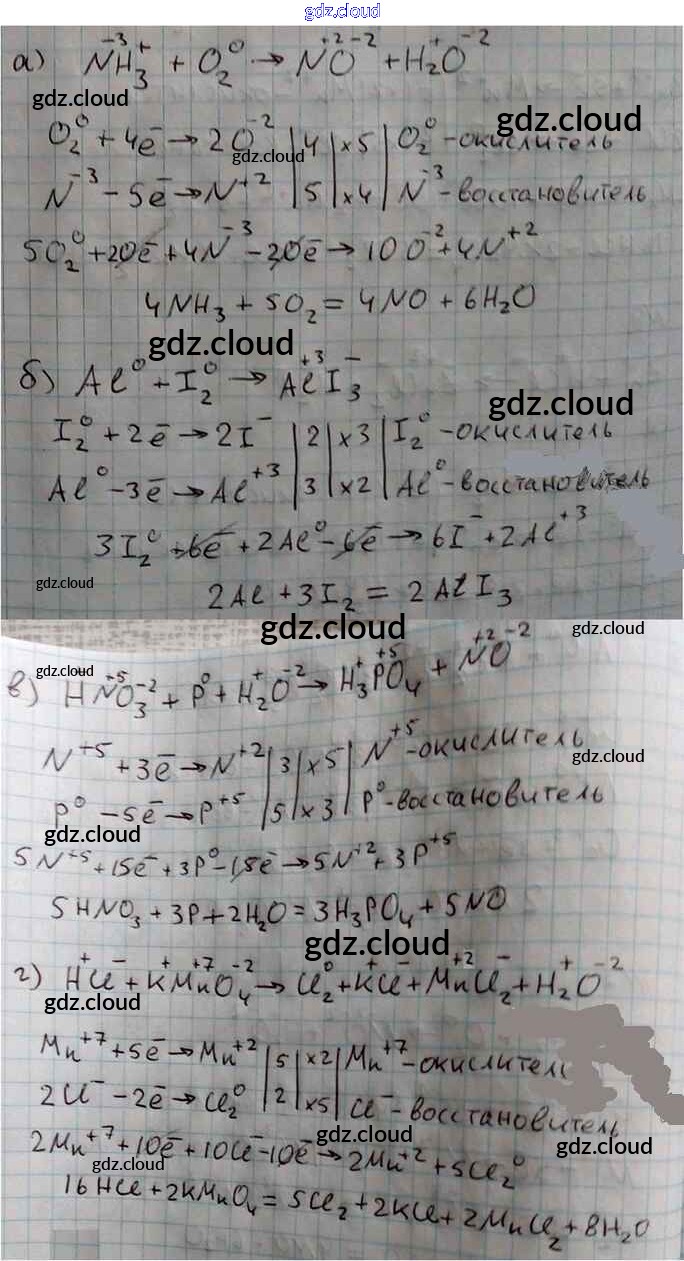 gdz.cloud
а) N⁻³H₃⁺ + O₂⁰ → N⁺²O⁻² + H₂⁺O⁻²
gdz.cloud
gdz.cloud
O₂⁰ + 4ē → 2O⁻² | 4 | ×5 | O₂⁰ - окислитель
gdz.cloud
N⁻³ - 5ē → N⁺² | 5 | ×4 | N⁻³ - восстановитель
5O₂⁰ + 20ē + 4N⁻³ - 20ē → 10O⁻² + 4N⁺²
4NH₃ + 5O₂ = 4NO + 6H₂O
gdz.cloud
б) Al⁰ + I₂⁰ → Al⁺³I₃⁻
gdz.cloud
I₂⁰ + 2ē → 2I⁻ | 2 | ×3 | I₂⁰ - окислитель
Al⁰ - 3ē → Al⁺³ | 3 | ×2 | Al⁰ - восстановитель
3I₂⁰ + 6ē + 2Al⁰ - 6ē → 6I⁻ + 2Al⁺³
gdz.cloud
2Al + 3I₂ = 2AlI₃
gdz.cloud
gdz.cloud
gdz.cloud
в) HN⁺⁵O₃⁻² + P⁰ + H₂⁺O⁻² → H₃⁺P⁺⁵O₄ + N⁺²O⁻²
N⁺⁵ + 3ē → N⁺² | 3 | ×5 | N⁺⁵ - окислитель
gdz.cloud
P⁰ - 5ē → P⁺⁵ | 5 | ×3 | P⁰ - восстановитель
gdz.cloud
5N⁺⁵ + 15ē + 3P⁰ - 15ē → 5N⁺² + 3P⁺⁵
5HNO₃ + 3P + 2H₂O = 3H₃PO₄ + 5NO
gdz.cloud
г) H⁺Cl⁻ + K⁺Mn⁺⁷O₄⁻² → Cl₂⁰ + K⁺Cl⁻ + Mn⁺²Cl₂⁻ + H₂⁺O⁻²
gdz.cloud
Mn⁺⁷ + 5ē → Mn⁺² | 5 | ×2 | Mn⁺⁷ - окислитель
2Cl⁻ - 2ē → Cl₂⁰ | 2 | ×5 | Cl⁻ - восстановитель
gdz.cloud
gdz.cloud
2Mn⁺⁷ + 10ē + 10Cl⁻ - 10ē → 2Mn⁺² + 5Cl₂⁰
gdz.cloud
16HCl + 2KMnO₄ = 5Cl₂ + 2KCl + 2MnCl₂ + 8H₂O